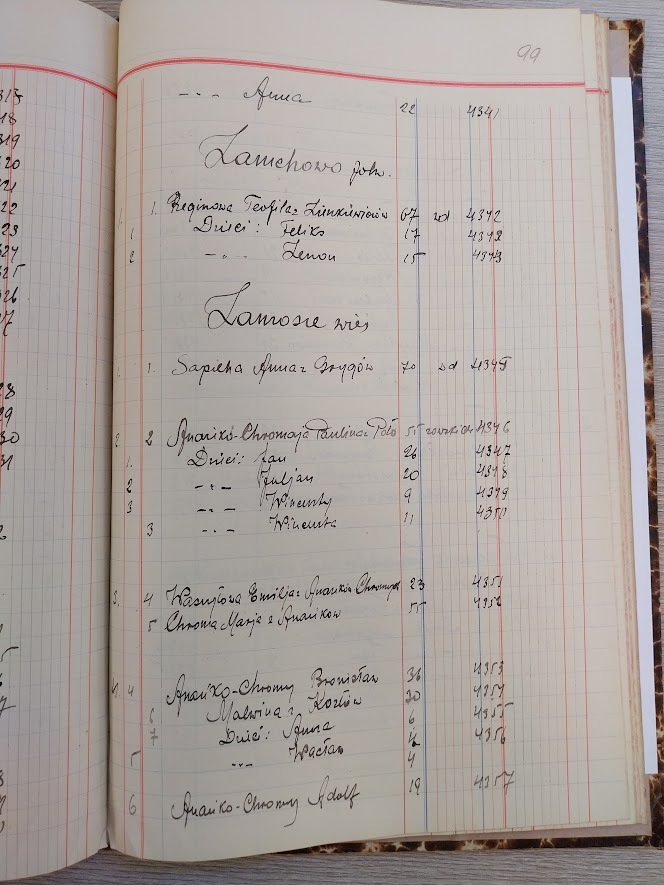 99
-·- Anna 22 4341
Zamchowo folw.
1. 1. Reginowa Teofila z Zienkiewiczów 67 wd 4342
1 Dzieci: Feliks 17 4342
2 -·- Zenon 15 4343
Zamosze wieś
1. 1. Sapieha Anna z Grygów 70 wd 4345
2. 2 Anańko-Chromaja Paulina z Poło 55 rowskich 4346
1. Dzieci: Jan 26 4347
2 -·- Juljan 20 4348
3 -·- Wincenty 9 4349
3 -·- Wincenta 11 4350
3. 4 Wasyłowa Emilja z Anańków Chromych 23 4351
5 Chroma Marja z Anańków 55 4352
4. 4 Anańko-Chromy Bronisław 36 4353
6 Malwina z Kozłów 30 4354
7 Dzieci: Anna 6 4355
5 -·- Wacław 4 4356
6 Anańko-Chromy Adolf 19 4357
313
18
319
20
21
22
23
324
325
26
28
29
30
31